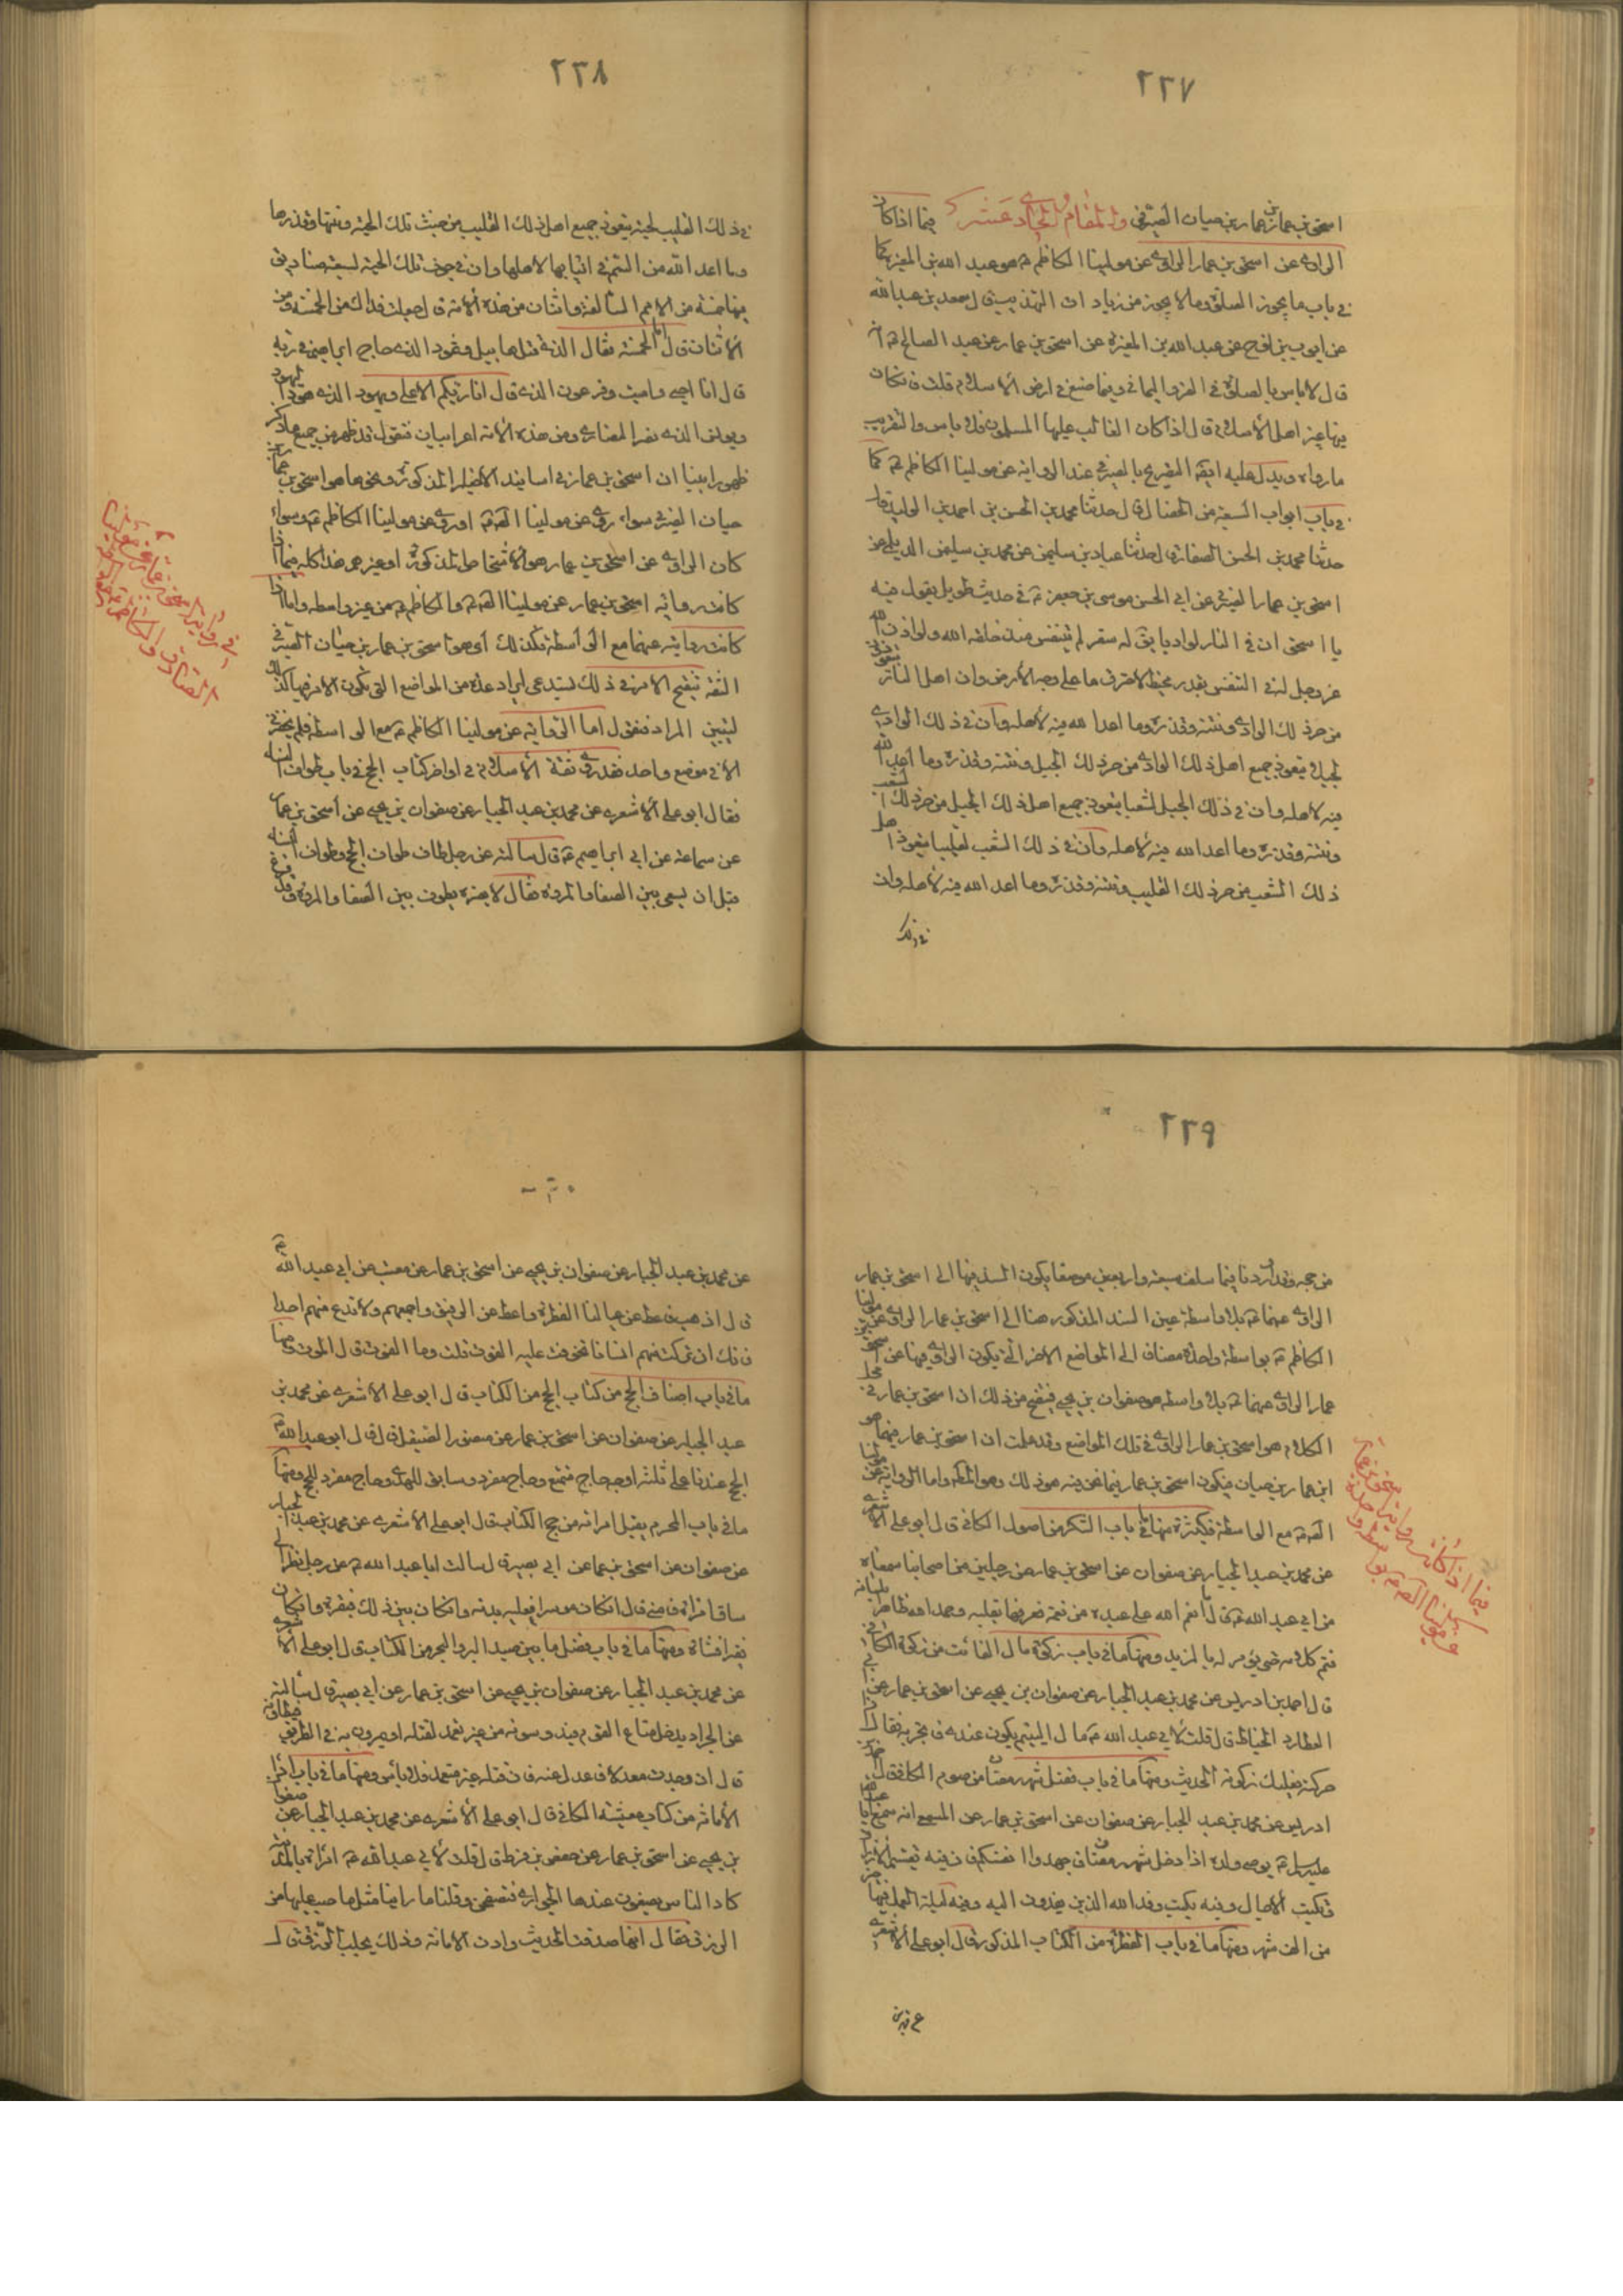 ٢٢٧
اسحق بن عمار بن حيان الصيرفي والمقام الحادي عشر فيما اذا كان
الراوي عن اسحق بن عمار الراوي عن مولينا الكاظم ع هو عبد الله بن المغيرة كما
في باب ما يجوز الصلوة وما لا يجوز من زيادات التهذيب قال سعد بن عبد الله
عن ايوب بن نوح عن عبد الله بن المغيرة عن اسحق بن عمار عن عبد الصالح ع انه
قال لا باس بالصلوة في الفرو اليماني وفيما صنع في ارض الاسلام قلت فان كان
فيها غير اهل الاسلام قال اذا كان الغالب عليها المسلمون فلا باس والتقريب
ما مر ويدل عليه ايضا التصريح بالصيرفي عند الرواية عن مولينا الكاظم ع كما
في باب ابواب السبعة من الخصال قال حدثنا محمد بن الحسن بن احمد بن الوليد قال
حدثنا محمد بن الحسن الصفار قال حدثنا عباد بن سليمن عن محمد بن سليمن الديلمي عن
اسحق بن عمار الصيرفي عن ابي الحسن موسى بن جعفر ع في حديث طويل يقول فيه
يا اسحق ان في النار لواديا يقال له سقر لم يتنفس منذ خلقه الله ولو اذن الله
عز وجل له في التنفس بقدر مخيط لاحترق ما على وجه الأرض وان اهل النار يتعوذون
من حر ذلك الوادي ونتنه وقذره وما اعد الله فيه لأهله وان في ذلك الوادي
لجبلا يتعوذ جميع اهل ذلك الوادي من حر ذلك الجبل ونتنه وقذره وما اعد الله
فيه لاهله وان في ذلك الجبل لشعبا يتعوذ جميع اهل ذلك الجبل من حر ذلك الشعب
ونتنه وقذره وما اعد الله فيه لأهله وان في ذلك الشعب لقليبا يتعوذ اهل
ذلك الشعب من حر ذلك القليب ونتنه وقذره وما اعد الله فيه لأهله وان
في ذلك
٢٢٨
في ذلك القليب لحية يتعوذ جميع اهل ذلك القليب من خبث تلك الحية ونتنها وقذرها
وما اعد الله من السم في انيابها لاهلها وان في جوف تلك الحية لسبعة صناديق
فيها خمسة من الامم السالفة واثنان من هذه الأمة قال جعلت فداك من الخمسة ومن
الأثنان قال اما الخمسة فقال الذي قتل هابيل ونمرود الذي حاج ابراهيم في ربه
قال انا احيي واميت وفرعون الذي قال انا ربكم الاعلى ويهود الذي هود اليهود
وبولس الذي نصر النصارى ومن هذه الأمة اعرابيان فنقول قد ظهر من جميع ما ذكر
ظهورا بينا ان اسحق بن عمار في اسانيد الأخبار المذكورة ونحوها هو اسحق بن عمار بن
حيان الصيرفي سواء روى عن مولينا الصادق ع او روى عن مولينا الكاظم ع وسواء
كان الراوي عن اسحق بن عمار هو الأشخاص المذكورة او غيرهم هذا كله فيما اذا
كانت رواية اسحق بن عمار عن مولينا الصادق ع والكاظم ع من غير واسطه واما اذا
كانت روايته عنهما مع الواسطة فكذلك أي هو اسحق بن عمار بن حيان الصيرفي
الثقة تنقيح الامر في ذلك يستدعي ايراد عدة من المواضع التي يكون الامر فيها كذلك
ليتبين المراد فنقول اما الرواية عن مولينا الكاظم ع مع الواسطة فلم نجدها
الا في موضع واحد فقد روى ثقة الأسلام في اواخر كتاب الحج في باب طواف النساء
فقال ابو علي الأشعري عن محمد بن عبد الجبار عن صفوان بن يحيى عن اسحق بن عمار
عن سماعة عن ابي ابراهيم ع قال سالته عن رجل طاف طواف الحج وطواف النساء
قبل ان يسعى بين الصفا والمروة فقال لا يضره يطوف بين الصفا والمروة وقد فرغ
في رواية اسحق بن عمار عن مولينا
الصادق والكاظم
٢٢٩
من حجه وقد اوردنا فيما سلف سبعة واربعين موضعا يكون السند فيها الى اسحق بن عمار
الراوي عنهما ع بلا واسطة عين السند المذكور هنا الى اسحق بن عمار الراوي عن مولينا
الكاظم ع بواسطة واحدة مضافا الى المواضع الاخر التي يكون الراوي فيها عن اسحق بن
عمار الراوي عنهما ع بلا واسطه هو صفوان بن يحيى فينقح من ذلك ان اسحق بن عمار في محل
الكلام هو اسحق بن عمار الراوي في تلك المواضع وقد علمت ان اسحق بن عمار فيها هو
ابن عمار بن حيان فيكون اسحق بن عمار فيما نحن فيه هو ذلك وهو المطلوب واما الرواية عن مولينا
الصادق ع مع الواسطة فكثيرة منها ما في باب الشكر من اصول الكافي قال ابو علي الأشعري
عن محمد بن عبد الجبار عن صفوان عن اسحق بن عمار عن رجلين من اصحابنا سمعناه
من ابي عبد الله ع قال ما انعم الله على عبد من نعمة فعرفها بقلبه وحمد الله ظاهرا بلسانه
فتم كلامه حتى يؤمر له بالمزيد ومنها ما في باب زكوة مال الغائب من زكوة الكافي
قال احمد بن ادريس عن محمد بن عبد الجبار عن صفوان بن يحيى عن اسحق بن عمار عن ابي
العطارد الخياط قال قلت لأبي عبد الله ع مال اليتيم يكون عندي فاتجر به فقال اذا
حركته فعليك زكوته الحديث ومنها ما في باب فضل شهر رمضان من صوم الكافي قال احمد بن
ادريس عن محمد بن عبد الجبار عن صفوان عن اسحق بن عمار عن المسمعي انه سمع ابا عبد الله
عليه السلام يوصي ولده اذا دخل شهر رمضان فاجهدوا انفسكم فان فيه تقسم الأرزاق
وتكتب الآجال وفيه يكتب وفد الله الذين يفدون اليه وفيه ليلة العمل فيها خير
من الف شهر ومنها ما في باب الفطرة من الكتاب المذكور قال ابو علي الأشعري
عن محمد بن
فيما اذا كانت رواية اسحق بن عمار
عن مولينا الصادق ع بواسطة واحدة
٢٣٠
عن محمد بن عبد الجبار عن صفوان بن يحيى عن اسحق بن عمار عن معتب عن ابي عبد الله ع
قال اذهب فاعط عن عيالنا الفطرة واعط عن الرقيق واجمعهم ولا تدع منهم احدا
فانك ان تركت منهم انسانا تخوفت عليه الفوت قلت وما الفوت قال الموت ومنها
ما في باب اصناف الحج من كتاب الحج من الكتاب قال ابو علي الأشعري عن محمد بن
عبد الجبار عن صفوان عن اسحق بن عمار عن منصور الصيقل قال قال ابو عبد الله ع
الحج عندنا على ثلثة اوجه حاج متمتع وحاج مفرد وسابق للهدي وحاج مفرد للحج ومنها
ما في باب المحرم يقبل امراته من حج الكتاب قال ابو علي الأشعري عن محمد بن عبد الجبار
عن صفوان عن اسحق بن عمار عن ابي بصير قال سالت ابا عبد الله ع عن رجل نظر الى
ساق امراة فامنى قال ان كان موسرا فعليه بدنة وان كان بين ذلك فبقرة وان كان
فقيرا فشاة ومنها ما في باب فصل ما بين صيد البر والبحر من الكتاب قال ابو علي الأشعري
عن محمد بن عبد الجبار عن صفوان بن يحيى عن اسحق بن عمار عن ابي بصير قال سألته
عن الجراد يدخل متاع القوم فيدوسونه من غير تعمد لقتله او يمرون به في الطريق فيطأونه
قال ان وجدت معدلا فاعدل عنه فان قتلته غير متعمد فلا باس ومنها ما في باب اداء
الأمانة من كتاب معيشة الكافي قال ابو علي الأشعري عن محمد بن عبد الجبار عن صفوان
بن يحيى عن اسحق بن عمار عن حفص بن قرط قال قلت لأبي عبد الله ع امراة بالمدينة
كان الناس يضعون عندها الجواري فتصلحهن وقلنا ما راينا مثل ما صب عليها من
الرزق فقال انها صدقت الحديث وادت الامانة وذلك يجلب الرزق قال